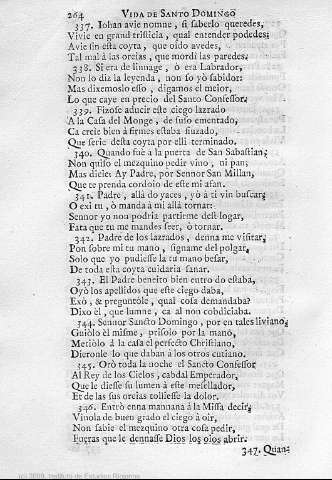 264 VIDA DE SANTO DOMINGO
337. Iohan avie nomne, si saberlo queredes,
Vivie en grand tristicia, qual entender podedes;
Avie sin esta coyta, que oido avedes,
Tal mal à las oreias, que mordi las paredes.
338. Si era de linnage, ò era Labrador,
Non lo diz la leyenda, non so yò sabidor:
Mas dixemoslo esso, digamos el meior,
Lo que caye en precio del Sancto Confessor.
339. Fizose aducir este ciego lazrado
A la Casa del Monge, de suso ementado,
Ca creie bien à firmes estaba fiuzado,
Que serie desta coyta por elli terminado.
340. Quando fuè à la puerta de San Sabastian,
Non quiso el mezquino pedir vino, ni pan;
Mas dicie: Ay Padre, por Sennor San Millan,
Que te prenda cordoio de este mi afan.
341. Padre, allà do yaces, yò à ti vin buscar;
O exi tu, ò manda à mi allà tornar:
Sennor yo non podria partieme dest logar,
Fata que tu me mandes seer, ò tornar.
342. Padre de los lazrados, denna me visitar,
Pon sobre mi tu mano, signame del polgar;
Solo que yo pudiesse la tu mano besar,
De toda esta coyta cuidaria sanar.
343. El Padre beneito bien entro do estaba,
Oyò los apellidos que este ciego daba,
Exò, & preguntòle, qual cosa demandaba?
Dixo èl, que lumne, ca al non cobdiciaba.
344. Sennor Sancto Domingo, por en tales liviano,
Guiòlo èl mismo, prisolo por la mano,
Metiòlo à la casa el perfecto Christiano,
Dieronle lo que daban à los otros cutiano.
345. Orò toda la noche el Sancto Confessor
Al Rey de los Cielos, cabdal Emperador,
Que le diesse su lumen à este mesellador,
Et de las sus oreias tolliesse la dolor.
346. Entrò enna mannana à la Missa decir,
Vinola de buen grado el ciego à oir,
Non sabie el mezquino otra cosa pedir,
Fueras que le dennasse Dios los oios abrir.
347. Quan-
(c) 2009, Instituto de Estudios Riojanos